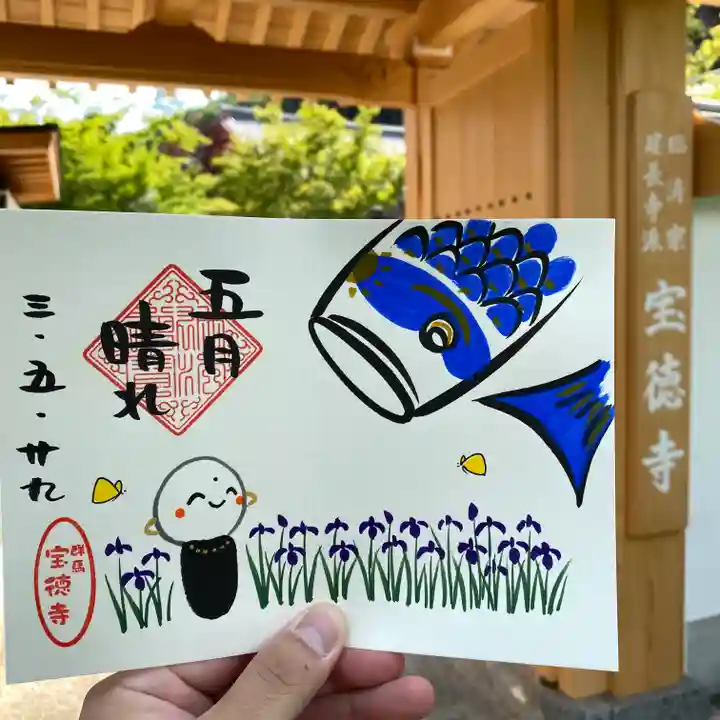 五月
晴れ
三・五・廿九
群馬
宝徳寺
臨済宗
建長寺派
宝徳寺